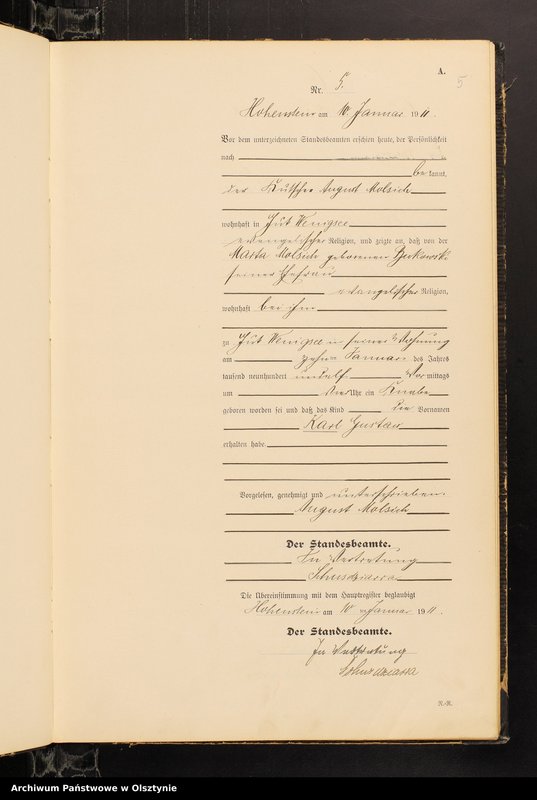 A.
5
Nr. 5.
Hohenstein am 10. Januar 1911.
Vor dem unterzeichneten Standesbeamten erschien heute, der Persönlichkeit
nach
be kannt,
der Kutscher August Molsich
wohnhaft in Gut
evangelischer Religion, und zeigte an, daß von der
Marta Molsich geborenen
seiner Ehefrau
evangelischer Religion,
wohnhaft bei ihm
zu Gut in seiner Wohnung
am zehnten Januar des Jahres
tausend neunhundert undelf Vor mittags
um Uhr ein Knabe
geboren worden sei und daß das Kind die Vornamen
Karl Gustav
erhalten habe.
Vorgelesen, genehmigt und unterschrieben.
August Molsich
Der Standesbeamte.
In Vertretung
Die Übereinstimmung mit dem Hauptregister beglaubigt
Hohenstein am 10. Januar 1911.
Der Standesbeamte.
In Vertretung
R.-R.
Archiwum Państwowe w Olsztynie